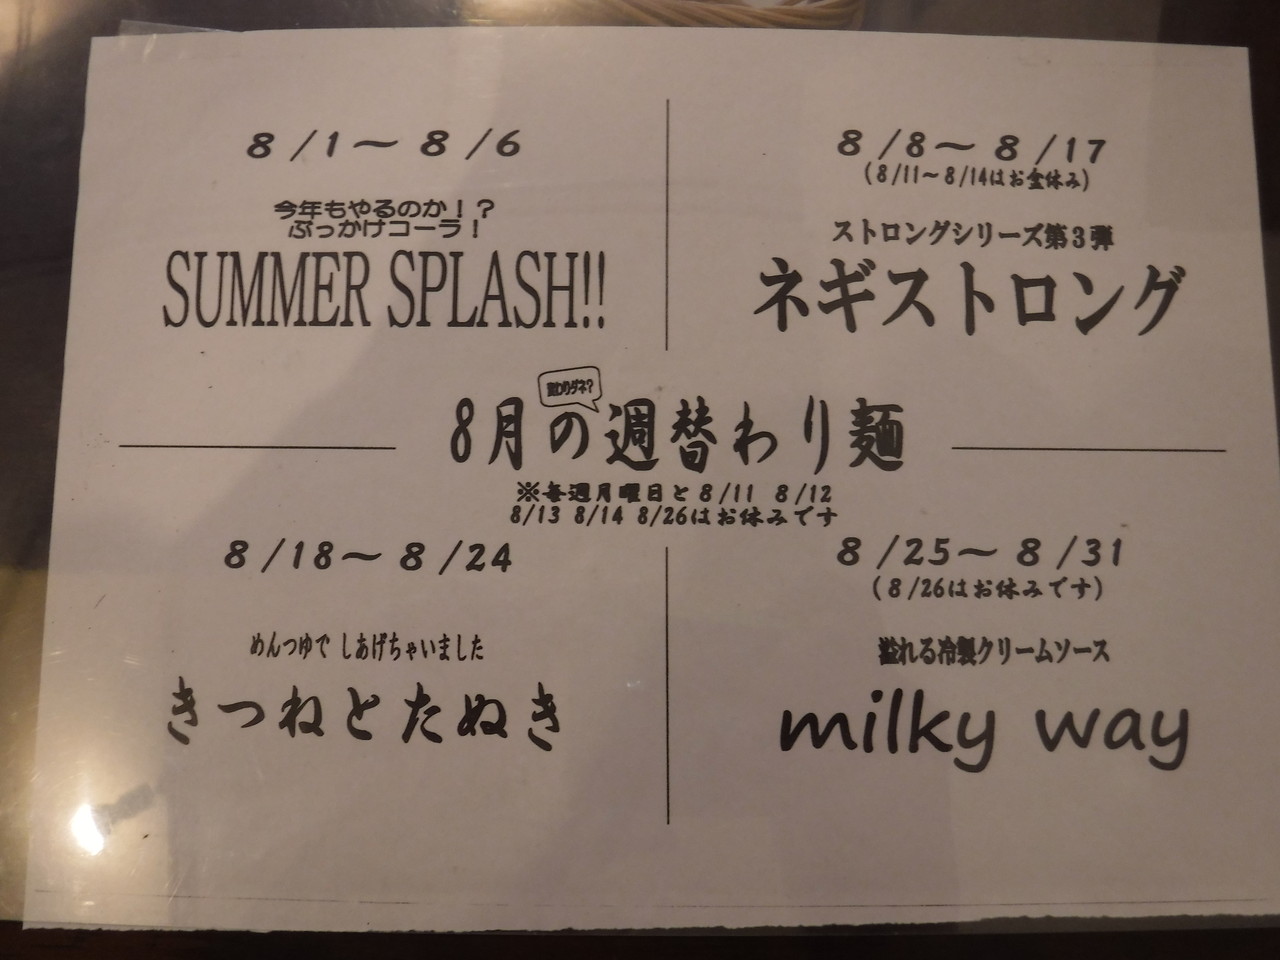 8/1～8/6
今年もやるのか！？
ぶっかけコーラ！
SUMMER SPLASH!!
8/8～8/17
(8/11～8/14はお盆休み)
ストロングシリーズ第3弾
ネギストロング
変わりダネ?
8月の週替わり麺
※毎週月曜日と8/11 8/12
8/13 8/14 8/26はお休みです
8/18～8/24
めんつゆで しあげちゃいました
きつねとたぬき
8/25～8/31
(8/26はお休みです)
溢れる冷製クリームソース
milky way